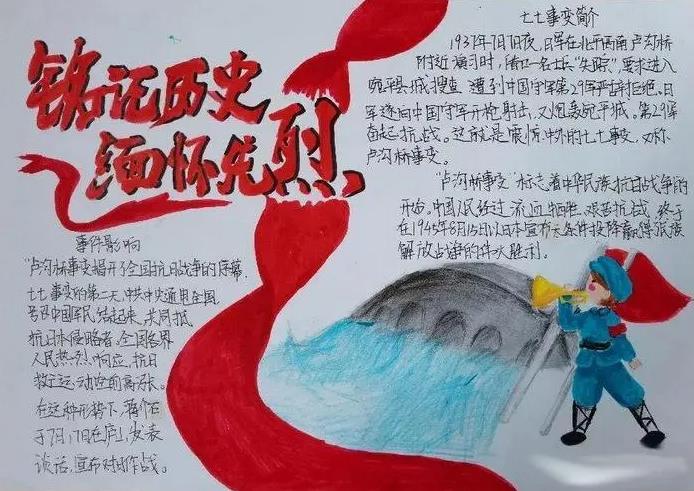 铭记历史
缅怀先烈
七七事变简介
1937年7月7日夜,日军在北平西南卢沟桥
附近演习时,借口一名士兵“失踪”,要求进入
宛平县城搜查,遭到中国守军第29军严辞拒绝。日
军遂向中国守军开枪射击,又炮轰宛平城。第29军
奋起抗战。这就是震惊中外的七七事变,又称
卢沟桥事变。
“卢沟桥事变”标志着中华民族抗日战争的
开始。中国人民经过流血牺牲,艰苦抗战,终于
在1945年8月15日以日本宣布无条件投降赢得民族
解放战争的伟大胜利。
事件影响
“卢沟桥事变揭开了全国抗日战争的序幕.
七七事变的第二天,中共中央通电全国
号召中国军民 团结起来,共同抵
抗日本侵略者,全国各界
人民热烈响应,抗日
救亡运动空前高涨。
在这种形势下,蒋介石
于7月17日在庐山发表
谈话,宣布对日作战。